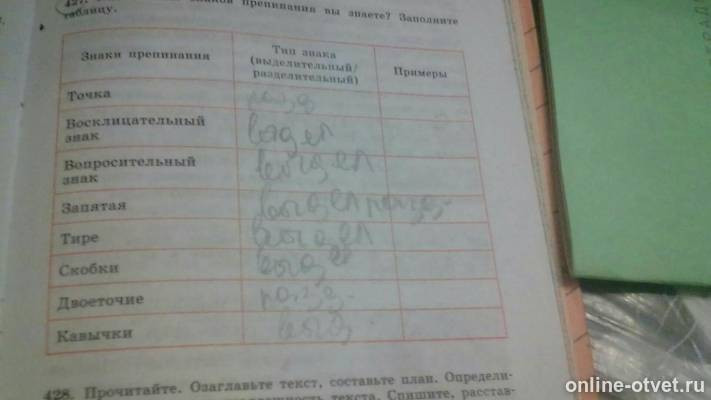 427. знаков препинания вы знаете? Заполните
таблицу.
Знаки препинания
Тип знака
(выделительный/
разделительный)
Примеры
Точка
разд
Восклицательный
знак
выдел
Вопросительный
знак
выдел
Запятая
выдел разд.
Тире
выдел
Скобки
выдел
Двоеточие
разд.
Кавычки
выд.
428. Прочитайте. Озаглавьте текст, составьте план. Определи-
текста. Спишите, расстав-
online-otvet.ru